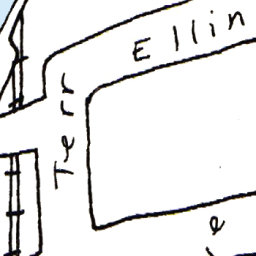 Ellin
Terr
e